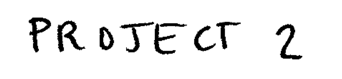 PROJECT 2